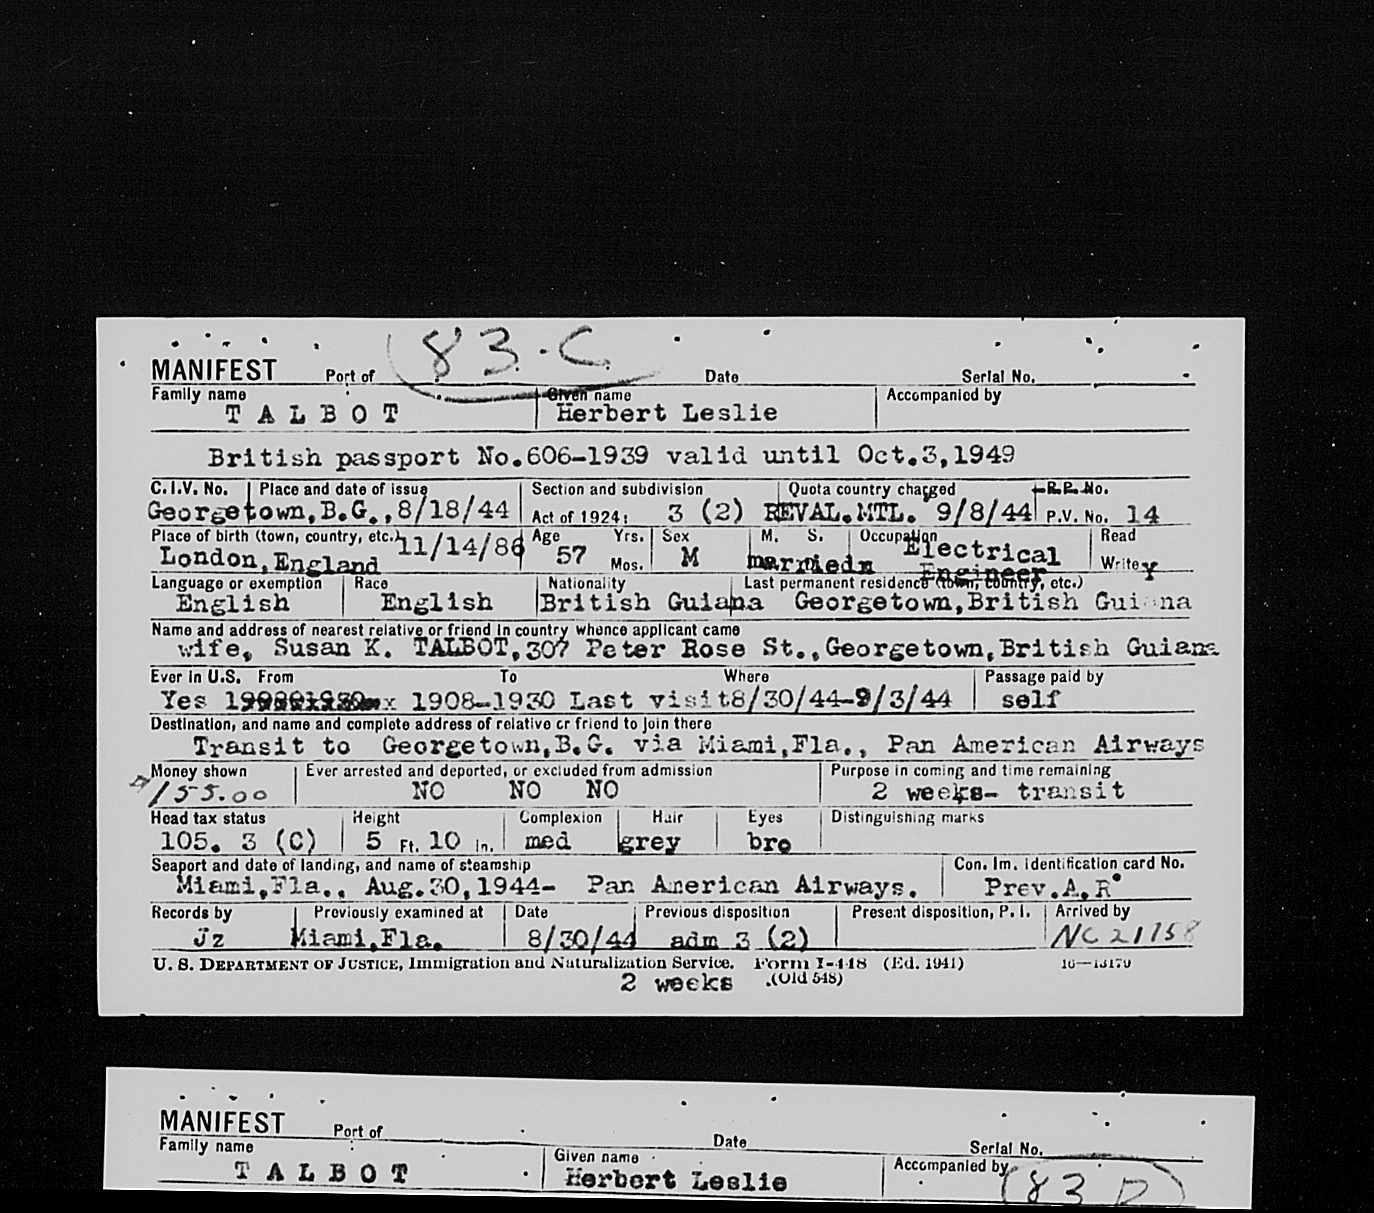 83.C.
MANIFEST Port of Date Serial No.
Family name Given name Accompanied by
TALBOT Herbert Leslie
British passport No.606-1939 valid until Oct.3,1949
C.I.V. No. Place and date of issue Section and subdivision Quota country charged R.P. No.
Georgetown,B.G.,8/18/44 Act of 1924: 3 (2) REVAL.MTL. 9/8/44 P.V. No. 14
Place of birth (town, country, etc.) 11/14/86 Age Yrs. Sex M. S. Occupation Read
London,England 57 Mos. M married Electrical Engineer Write Y
Language or exemption Race Nationality Last permanent residence (town, country, etc.)
English English British Guiana Georgetown,British Guiana
Name and address of nearest relative or friend in country whence applicant came
wife, Susan K. TALBOT,307 Peter Rose St.,Georgetown,British Guiana
Ever in U.S. From To Where Passage paid by
Yes 1908-1930 Last visit8/30/44-9/3/44 self
Destination, and name and complete address of relative or friend to join there
Transit to Georgetown,B.G. via Miami,Fla., Pan American Airways
Money shown Ever arrested and deported, or excluded from admission Purpose in coming and time remaining
155.00 NO NO NO 2 weeks- transit
Head tax status Height Complexion Hair Eyes Distinguishing marks
105. 3 (C) 5 Ft. 10 In. med grey bro
Seaport and date of landing, and name of steamship Con. Im. identification card No.
Miami,Fla., Aug.30,1944- Pan American Airways. Prev.A.R.
Records by Previously examined at Date Previous disposition Present disposition, P. I. Arrived by
Jz Miami,Fla. 8/30/44 adm 3 (2) NC 21758
U. S. DEPARTMENT OF JUSTICE, Immigration and Naturalization Service. Form I-448 (Ed. 1941) 16—13170
2 weeks (Old 548)
MANIFEST Port of Date Serial No.
Family name Given name Accompanied by
TALBOT Herbert Leslie 83 D